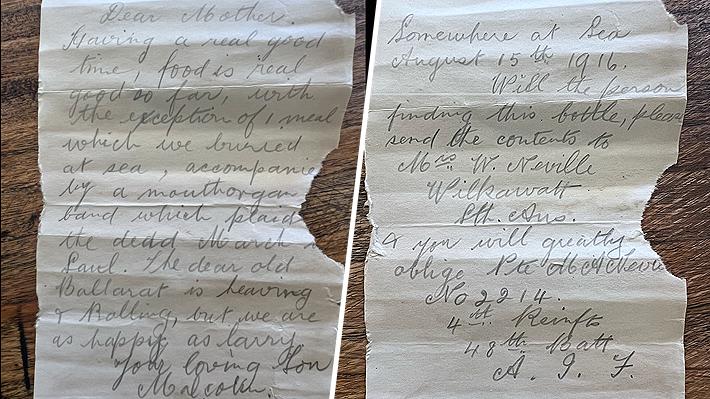 Dear Mother.
Having a real good
time, food is real
good so far, with
the exception of 1 meal
which we buried
at sea, accompanie
by a mouthorgan
band which plaid
the dedd March
Saul. The dear old
Ballarat is heaving
& Rolling, but we are
as happy as larry.
Your loving Son
Malcolm.
Somewhere at Sea
August 15th 1916.
Will the person
finding this bottle, please
send the contents to
Mrs W. Neville
Wilkawatt
Sth. Aus.
& you will greatly
oblige Pte M A Nevi
No 2214.
4th Reinfts
48th Batt
A. I. F.